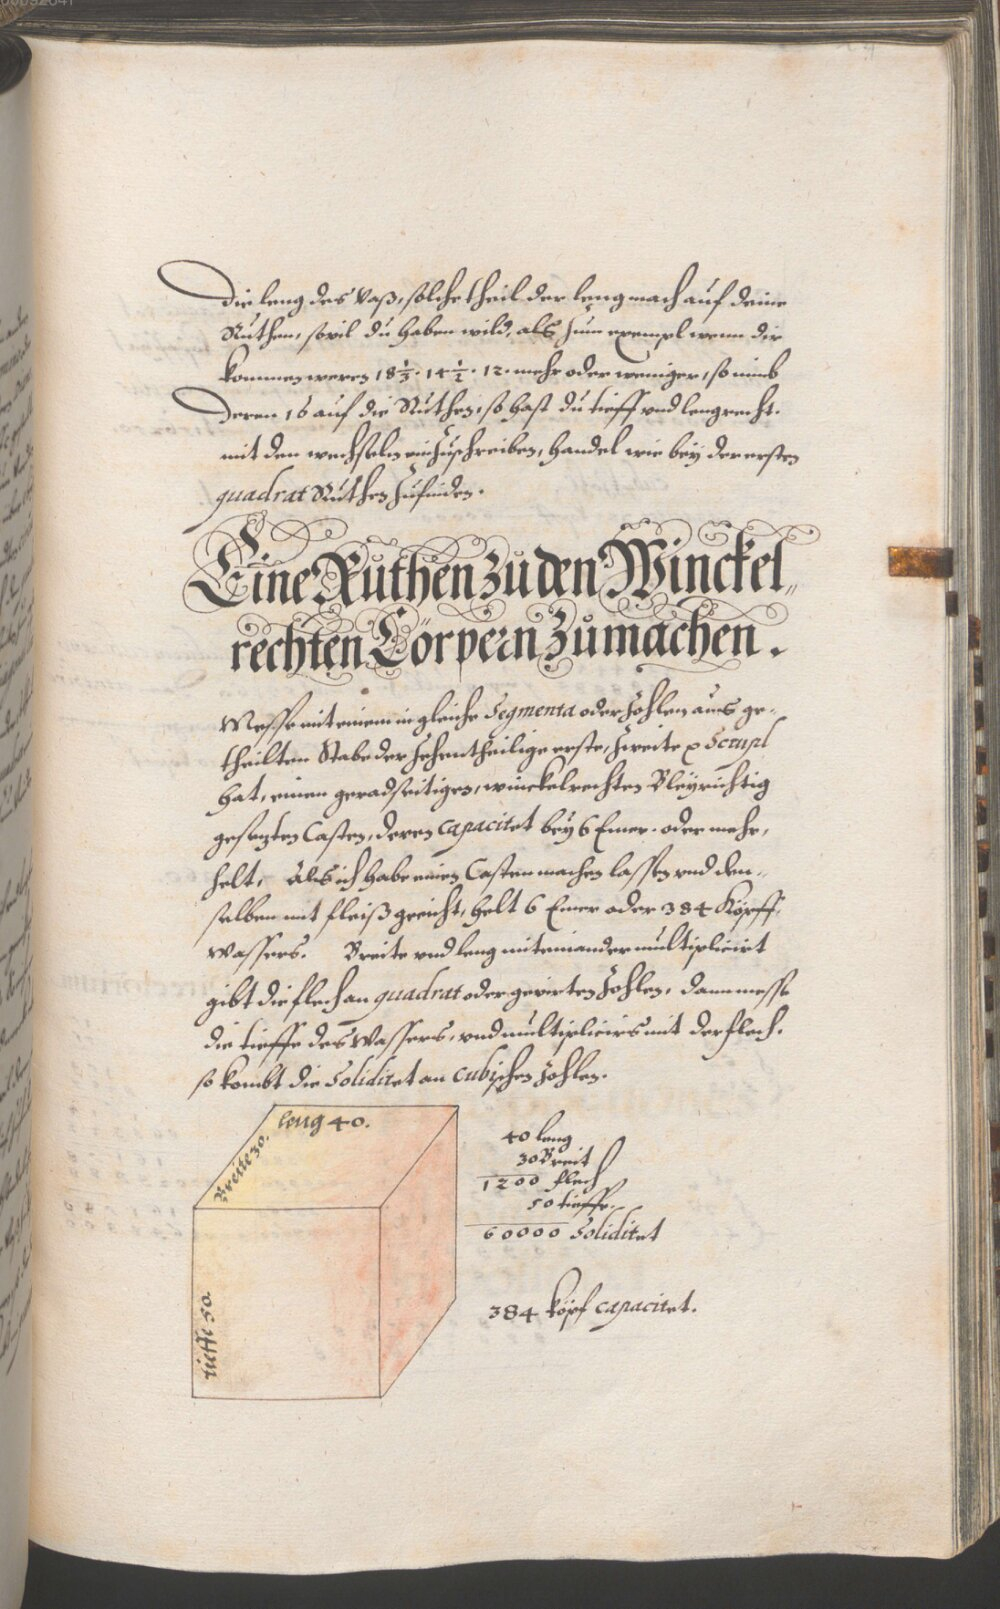 Die leng des Vaß, solche theil der leng mach auf deine
Ruthen, sovil du haben wild, als zum exempl wenn dir
kommen weren 18⅓. 14½. 12. mehr oder weniger, so nimb
Deren 16 auf die Ruthen, so hast du tieff vnd leng recht.
mit den wechseln einzuschreiben, handel wie bey der ersten
quadrat Ruthen zufinden.
Eine Ruthen zu den Winckel„
rechten Cörpern Zumachen.
Messe mit einem in gleiche Segmenta oder Zohlen auß ge-
theilten Stabe der Zehentheilige erste, zweite Scrupl
hat, einen geradseitigen, winckelrechten Bleyrichtig
gesezten Casten, deren capacitet bey 6 Emer. oder mehr,
helt, Als ich habe einen Casten machen lassen vnd den„
selben mit fleiß geeicht, helt 6 Emer oder 384 Köpff.
Wassers. Breite vnd leng miteinander multiplicirt
gibt die flech an quadrat oder gevirten Zohlen, dann messe
die tieffe des Wassers, vnd multiplicirs mit der flech.
so kombt die Soliditet an cubischen Zohlen.
leng 40.
Breite 30.
tieffe 50
40 leng
30 Breit
1200 flech
50 tieffe.
60000 Soliditet
384 köpf capacitet.